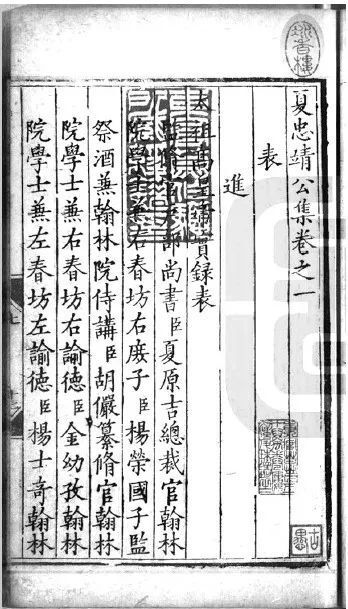 夏忠靖公集卷之一
表
進
太祖高皇帝實錄表
監脩官户部尚書臣夏原吉總裁官翰林
院學士兼右春坊右庶子臣楊榮國子監
祭酒兼翰林院侍講臣胡儼纂脩官翰林
院學士兼右春坊右諭德臣金幼孜翰林
院學士兼左春坊左諭德臣楊士奇翰林